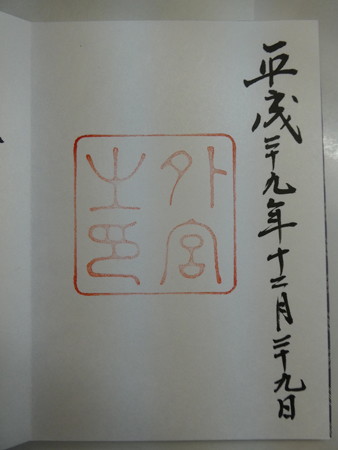 平成二十九年十二月二十九日
外宮
之印